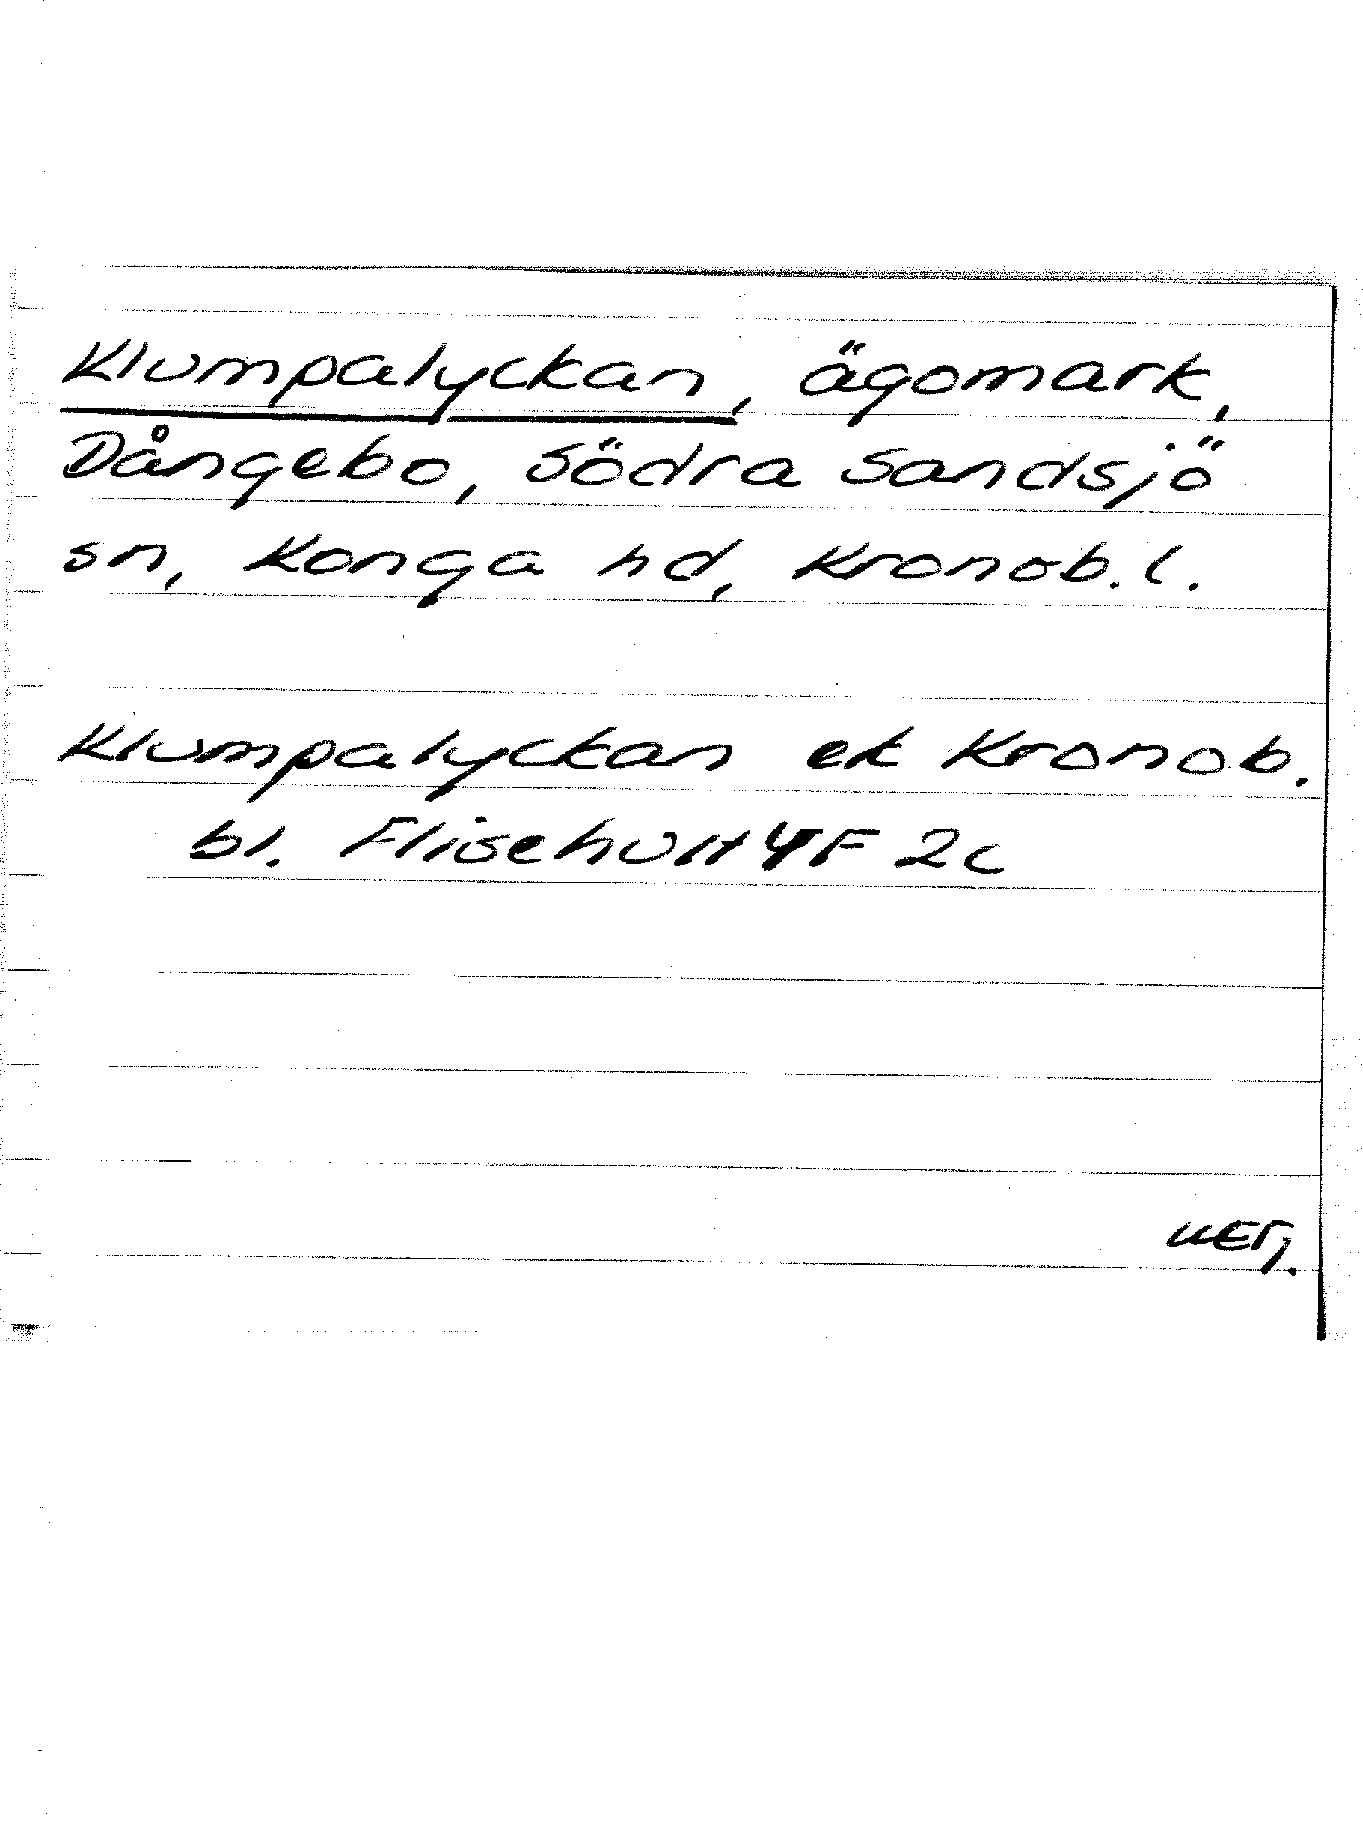 Klumpalyckan, ägomark,
Dångebo, Södra Sandsjö
sn, Konga hd, Kronob. l.
Klumpalyckan ek Kronob.
bl. Flisehult 4F 2c